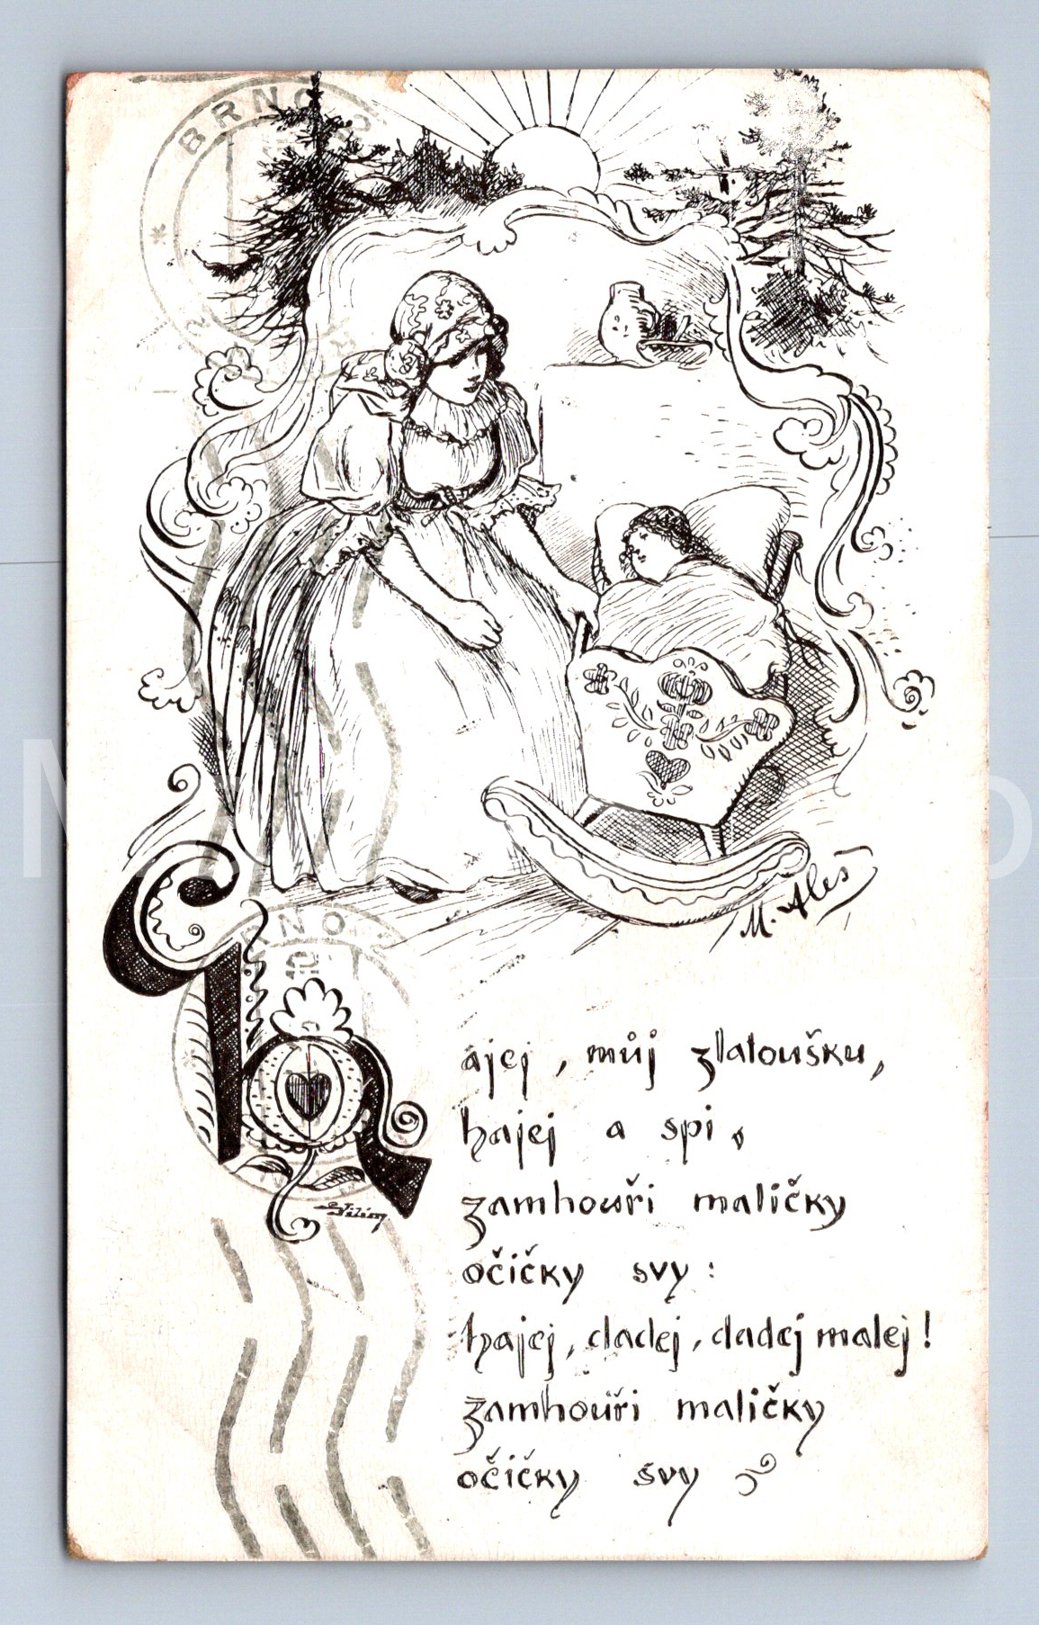 BRNO
M. Aleš
BRNO
10
Hajej, můj zlatoušku,
hajej a spi,
zamhouři maličky
očičky svy:
hajej, dadej, dadej malej!
zamhouři maličky
očičky svy